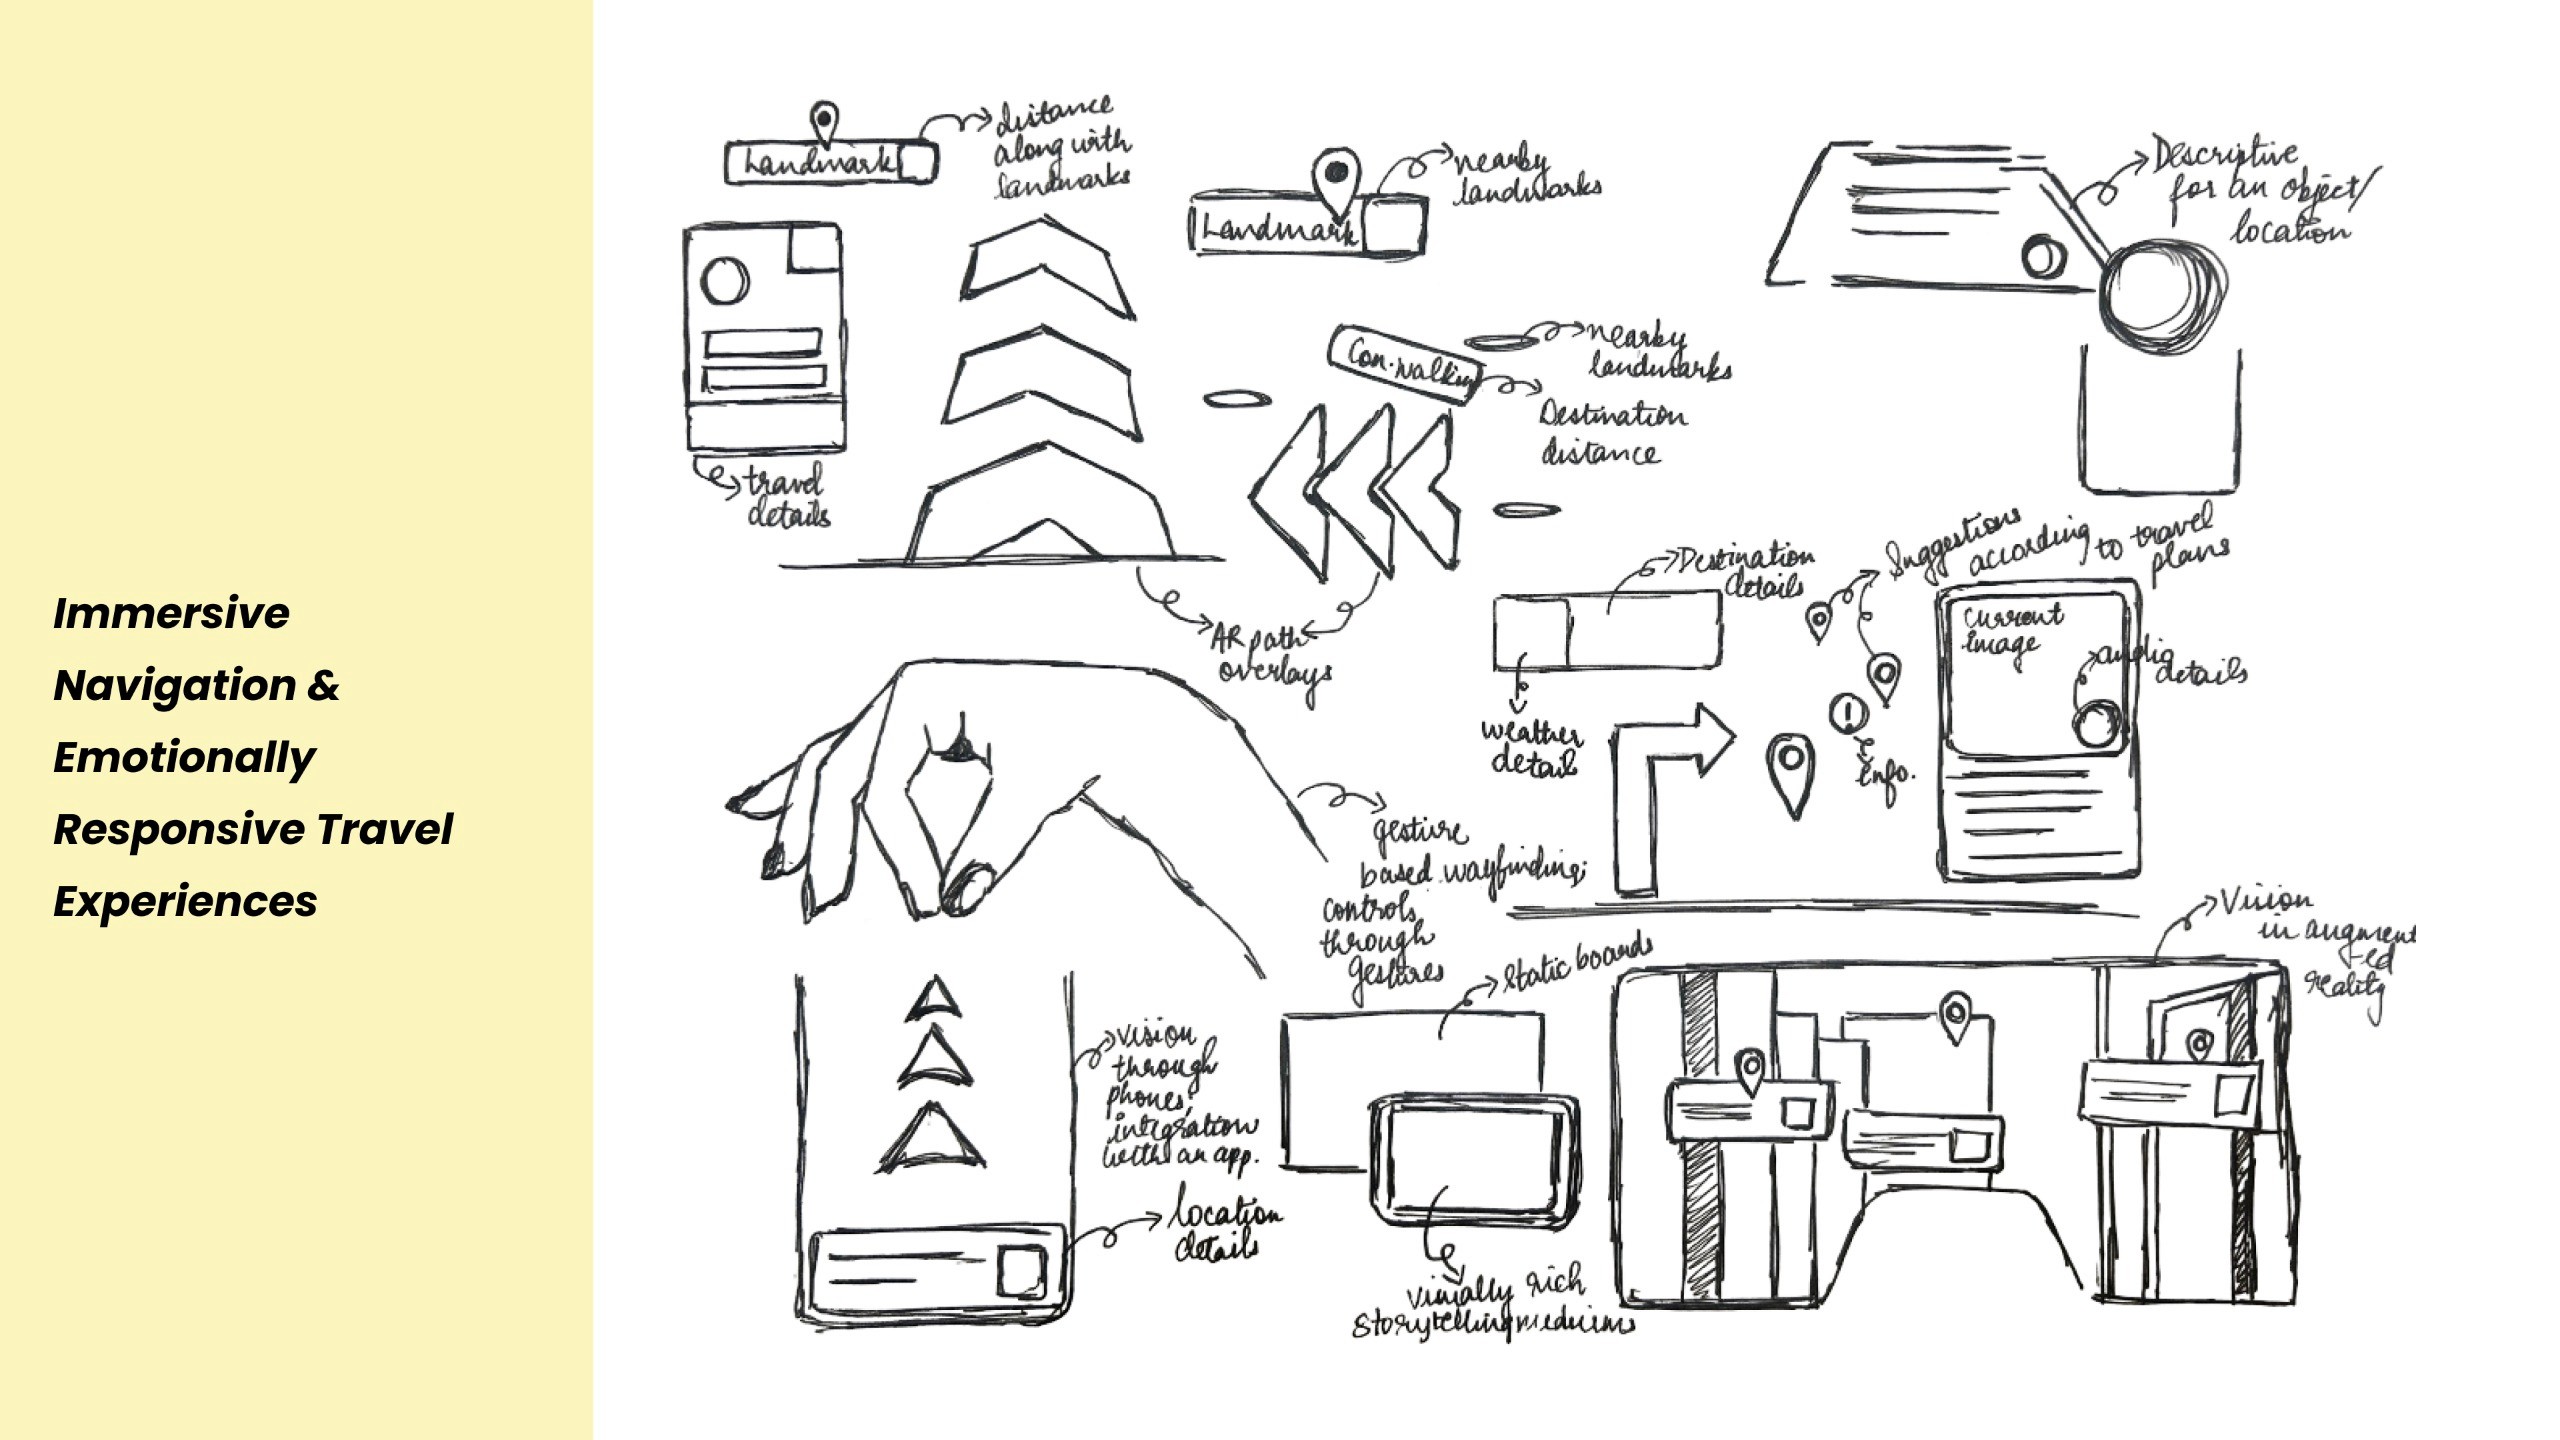 Immersive
Navigation &
Emotionally
Responsive Travel
Experiences
Landmark
distance
along with
landmarks
travel
details
Landmark
nearby
landmarks
Con. walking
nearby
landmarks
Destination
distance
AR path
overlays
Descriptive
for an object/
location
Destination
details
weather
detail
Suggestions
according to travel
plans
Current
image
audio
details
info.
gesture
based wayfinding;
controls
through
gestures
Vision
through
phones;
integration
with an app.
location
details
Static boards
Visually rich
storytelling mediums
Vision
in augment
-ed
reality